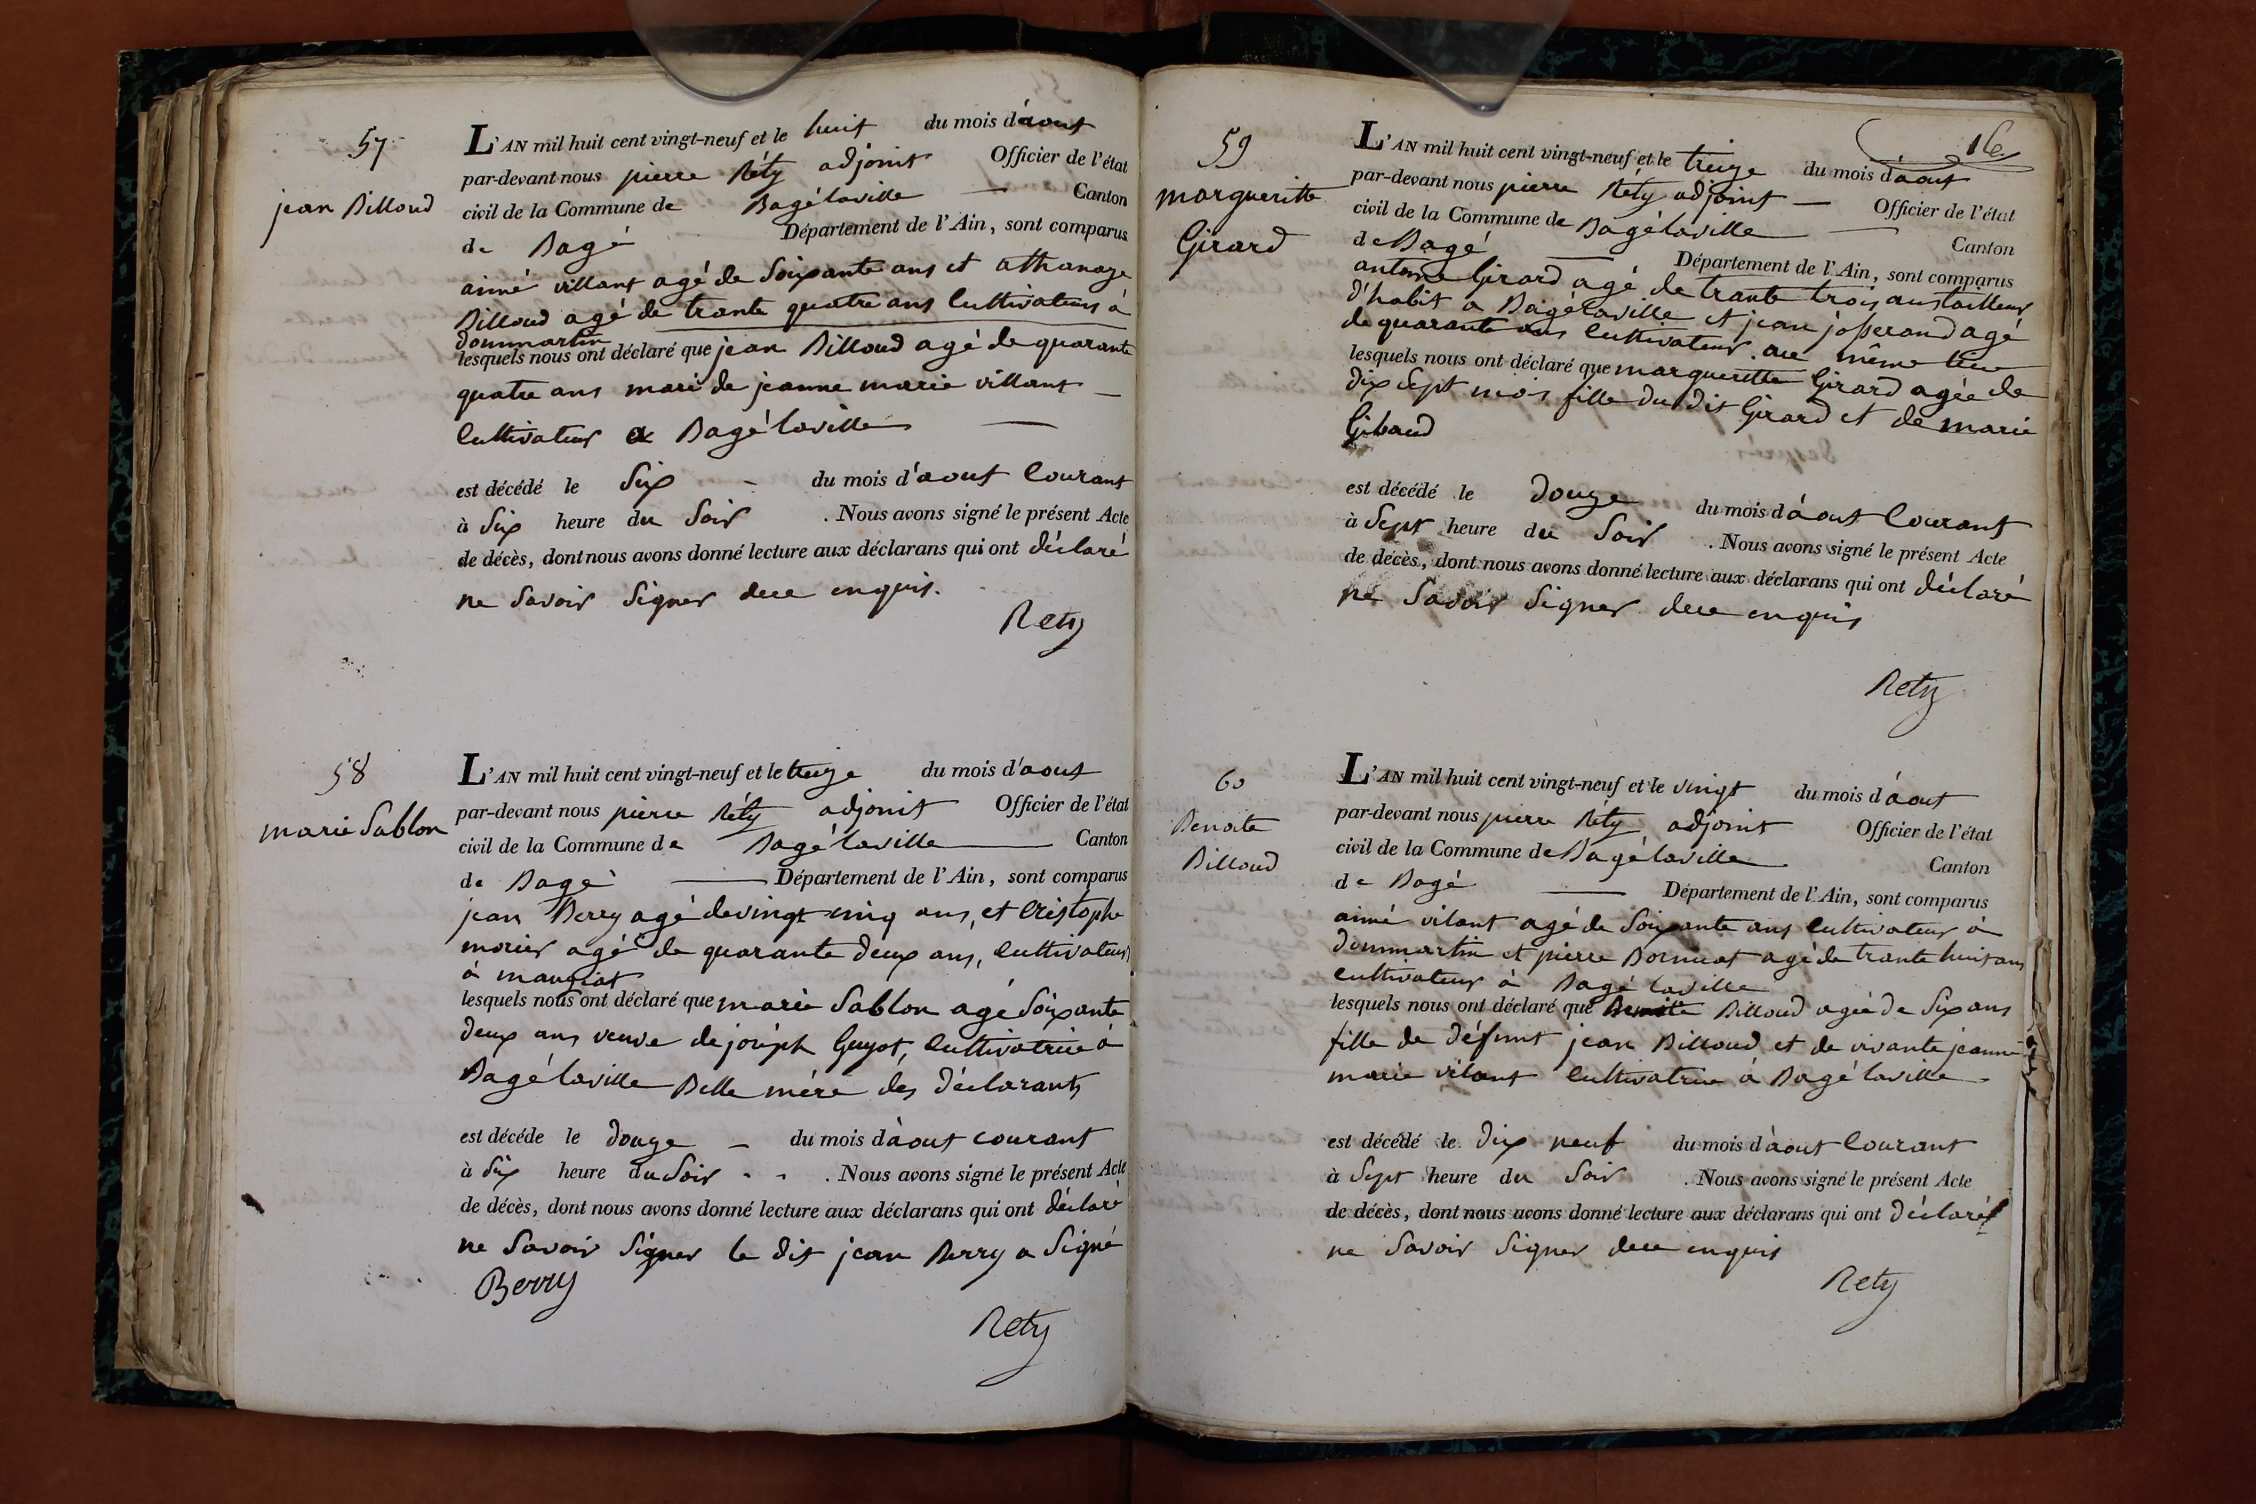 57
jean Billoud
L'AN mil huit cent vingt-neuf et le huit du mois d'aout
par-devant nous pierre Réty adjoint Officier de l'état
civil de la Commune de Bagélaville — Canton
de Bagé Département de l'Ain, sont comparus
aimé villant agé de soixante ans et athanaze
Billoud agé de trante quatre ans Cultivateurs à
dommartin
lesquels nous ont déclaré que jean Billoud agé de quarante
quatre ans mari de jeanne marie villant —
Cultivateur a Bagélaville —
est décédé le six - du mois d'aout Courant
à six heure du soir . Nous avons signé le présent Acte
de décès, dont nous avons donné lecture aux déclarans qui ont déclaré
ne savoir signer de ce enquis.
Rety
58
marie Sablon
L'AN mil huit cent vingt-neuf et le treize du mois d'aout
par-devant nous pierre Réty adjoint Officier de l'état
civil de la Commune de Bagélaville — Canton
de Bagé — Département de l'Ain, sont comparus
jean Berry agé de vingt cinq ans, et Cristophe
morier agé de quarante deux ans, Cultivateurs
à manziat
lesquels nous ont déclaré que marie Sablon agé soixante
deux ans veuve de joseph Guyot, Cultivatrice à
Bagélaville Belle mére des déclarants
est décéde le douze - du mois d'aout courant
à six heure du soir - - . Nous avons signé le présent Acte
de décès, dont nous avons donné lecture aux déclarans qui ont déclaré
ne savoir signer le dit jean Berry a signé
Berry
Rety
16
59
margueritte
Girard
L'AN mil huit cent vingt-neuf et le treize du mois d'aout
par-devant nous pierre Réty adjoint — Officier de l'état
civil de la Commune de Bagélaville — Canton
de Bagé — Département de l'Ain, sont comparus
antoine Girard agé de trante trois ans tailleur
d'habit a Bagélaville et jean josserand agé
de quarante ans cultivateur au même lieu
lesquels nous ont déclaré que margueritte Girard agée de
dix sept mois fille du dit Girard et de marie
Gibaud
est décédé le douze du mois d'aout Courant
à sept heure du soir . Nous avons signé le présent Acte
de décès, dont nous avons donné lecture aux déclarans qui ont déclaré
ne savoir signer de ce enquis
Rety
60
Benoite
Billoud
L'AN mil huit cent vingt-neuf et le vingt du mois d'aout
par-devant nous pierre Réty adjoint Officier de l'état
civil de la Commune de Bagélaville Canton
de Bagé — Département de l'Ain, sont comparus
aimé vilant agé de soixante ans cultivateur à
dommartin et pierre Bornuat agé de trante huit ans
cultivateur à Bagé laville
lesquels nous ont déclaré que Benoite Billoud agée de six ans
fille de défunt jean Billoud et de vivante jeanne
marie vilant Cultivatrice à Bagélaville
est décédé le dix neuf du mois d'aout Courant
à sept heure du soir . Nous avons signé le présent Acte
de décès, dont nous avons donné lecture aux déclarans qui ont déclaré
ne savoir signer de ce enquis
Rety